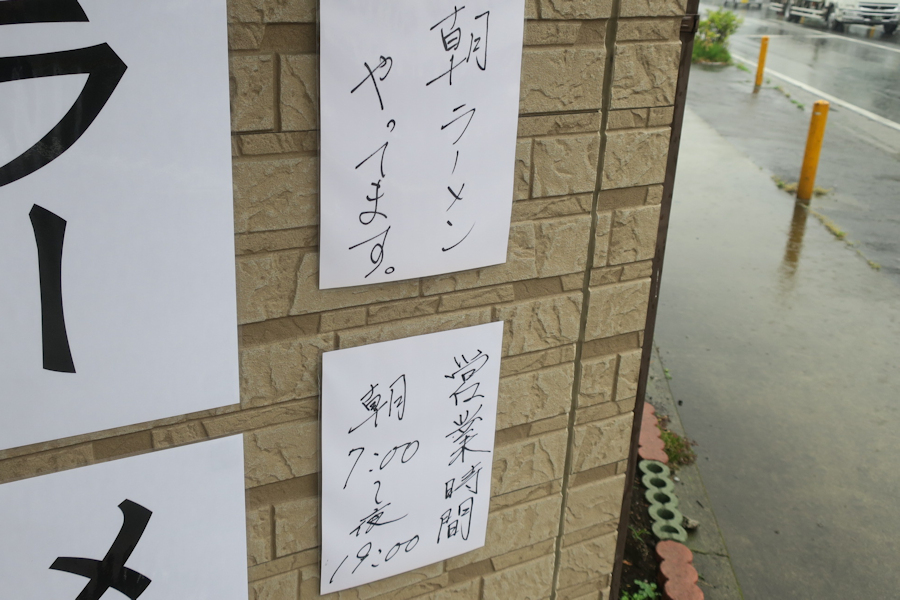 朝ラーメン
やってます。
営業時間
朝
7:00
〜
夜
19:00
ラー
メ